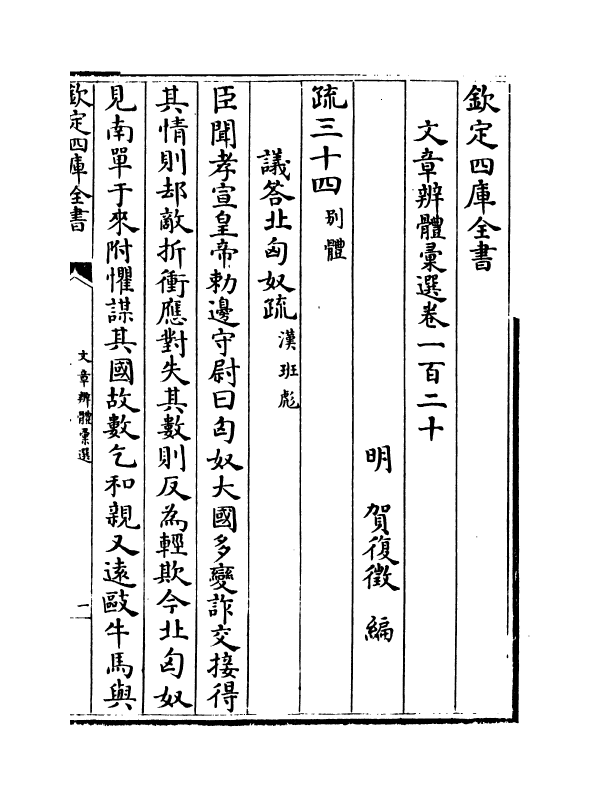 欽定四庫全書
文章辨體彚選卷一百二十
明　賀復徵　編
疏三十四 别體
議答北匈奴疏 漢班彪
臣聞孝宣皇帝勅邊守尉曰匈奴大國多變詐交接得
其情則却敵折衝應對失其數則反為輕欺今北匈奴
見南單于來附懼謀其國故數乞和親又逺敺牛馬與
欽定四庫全書
文章辨體彚選
一